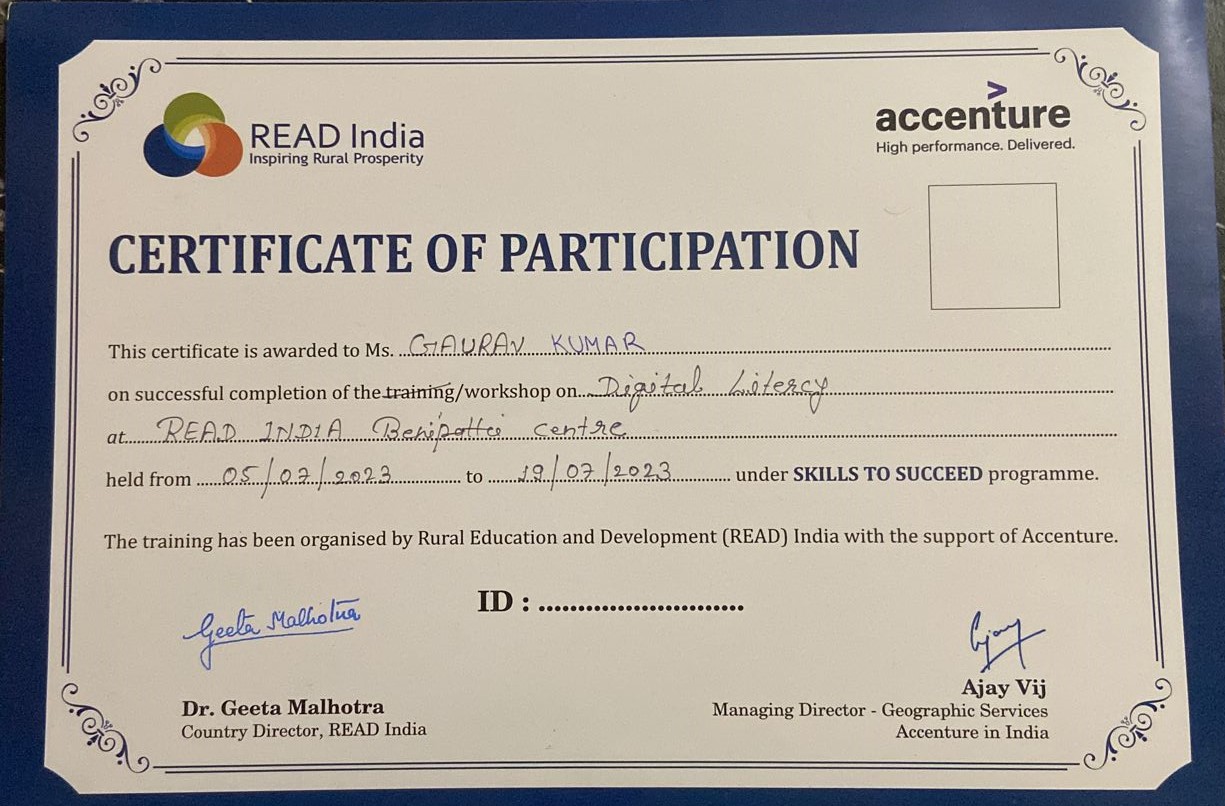 READ India
Inspiring Rural Prosperity
>
accenture
High performance. Delivered.
CERTIFICATE OF PARTICIPATION
This certificate is awarded to Ms. GAURAV KUMAR
on successful completion of the training/workshop on Digital Litercy
at READ INDIA Benipatti centre
held from 05/07/2023 to 19/07/2023 under SKILLS TO SUCCEED programme.
The training has been organised by Rural Education and Development (READ) India with the support of Accenture.
ID : ..........................
Geeta Malhotra
Ajay
Dr. Geeta Malhotra
Country Director, READ India
Ajay Vij
Managing Director - Geographic Services
Accenture in India